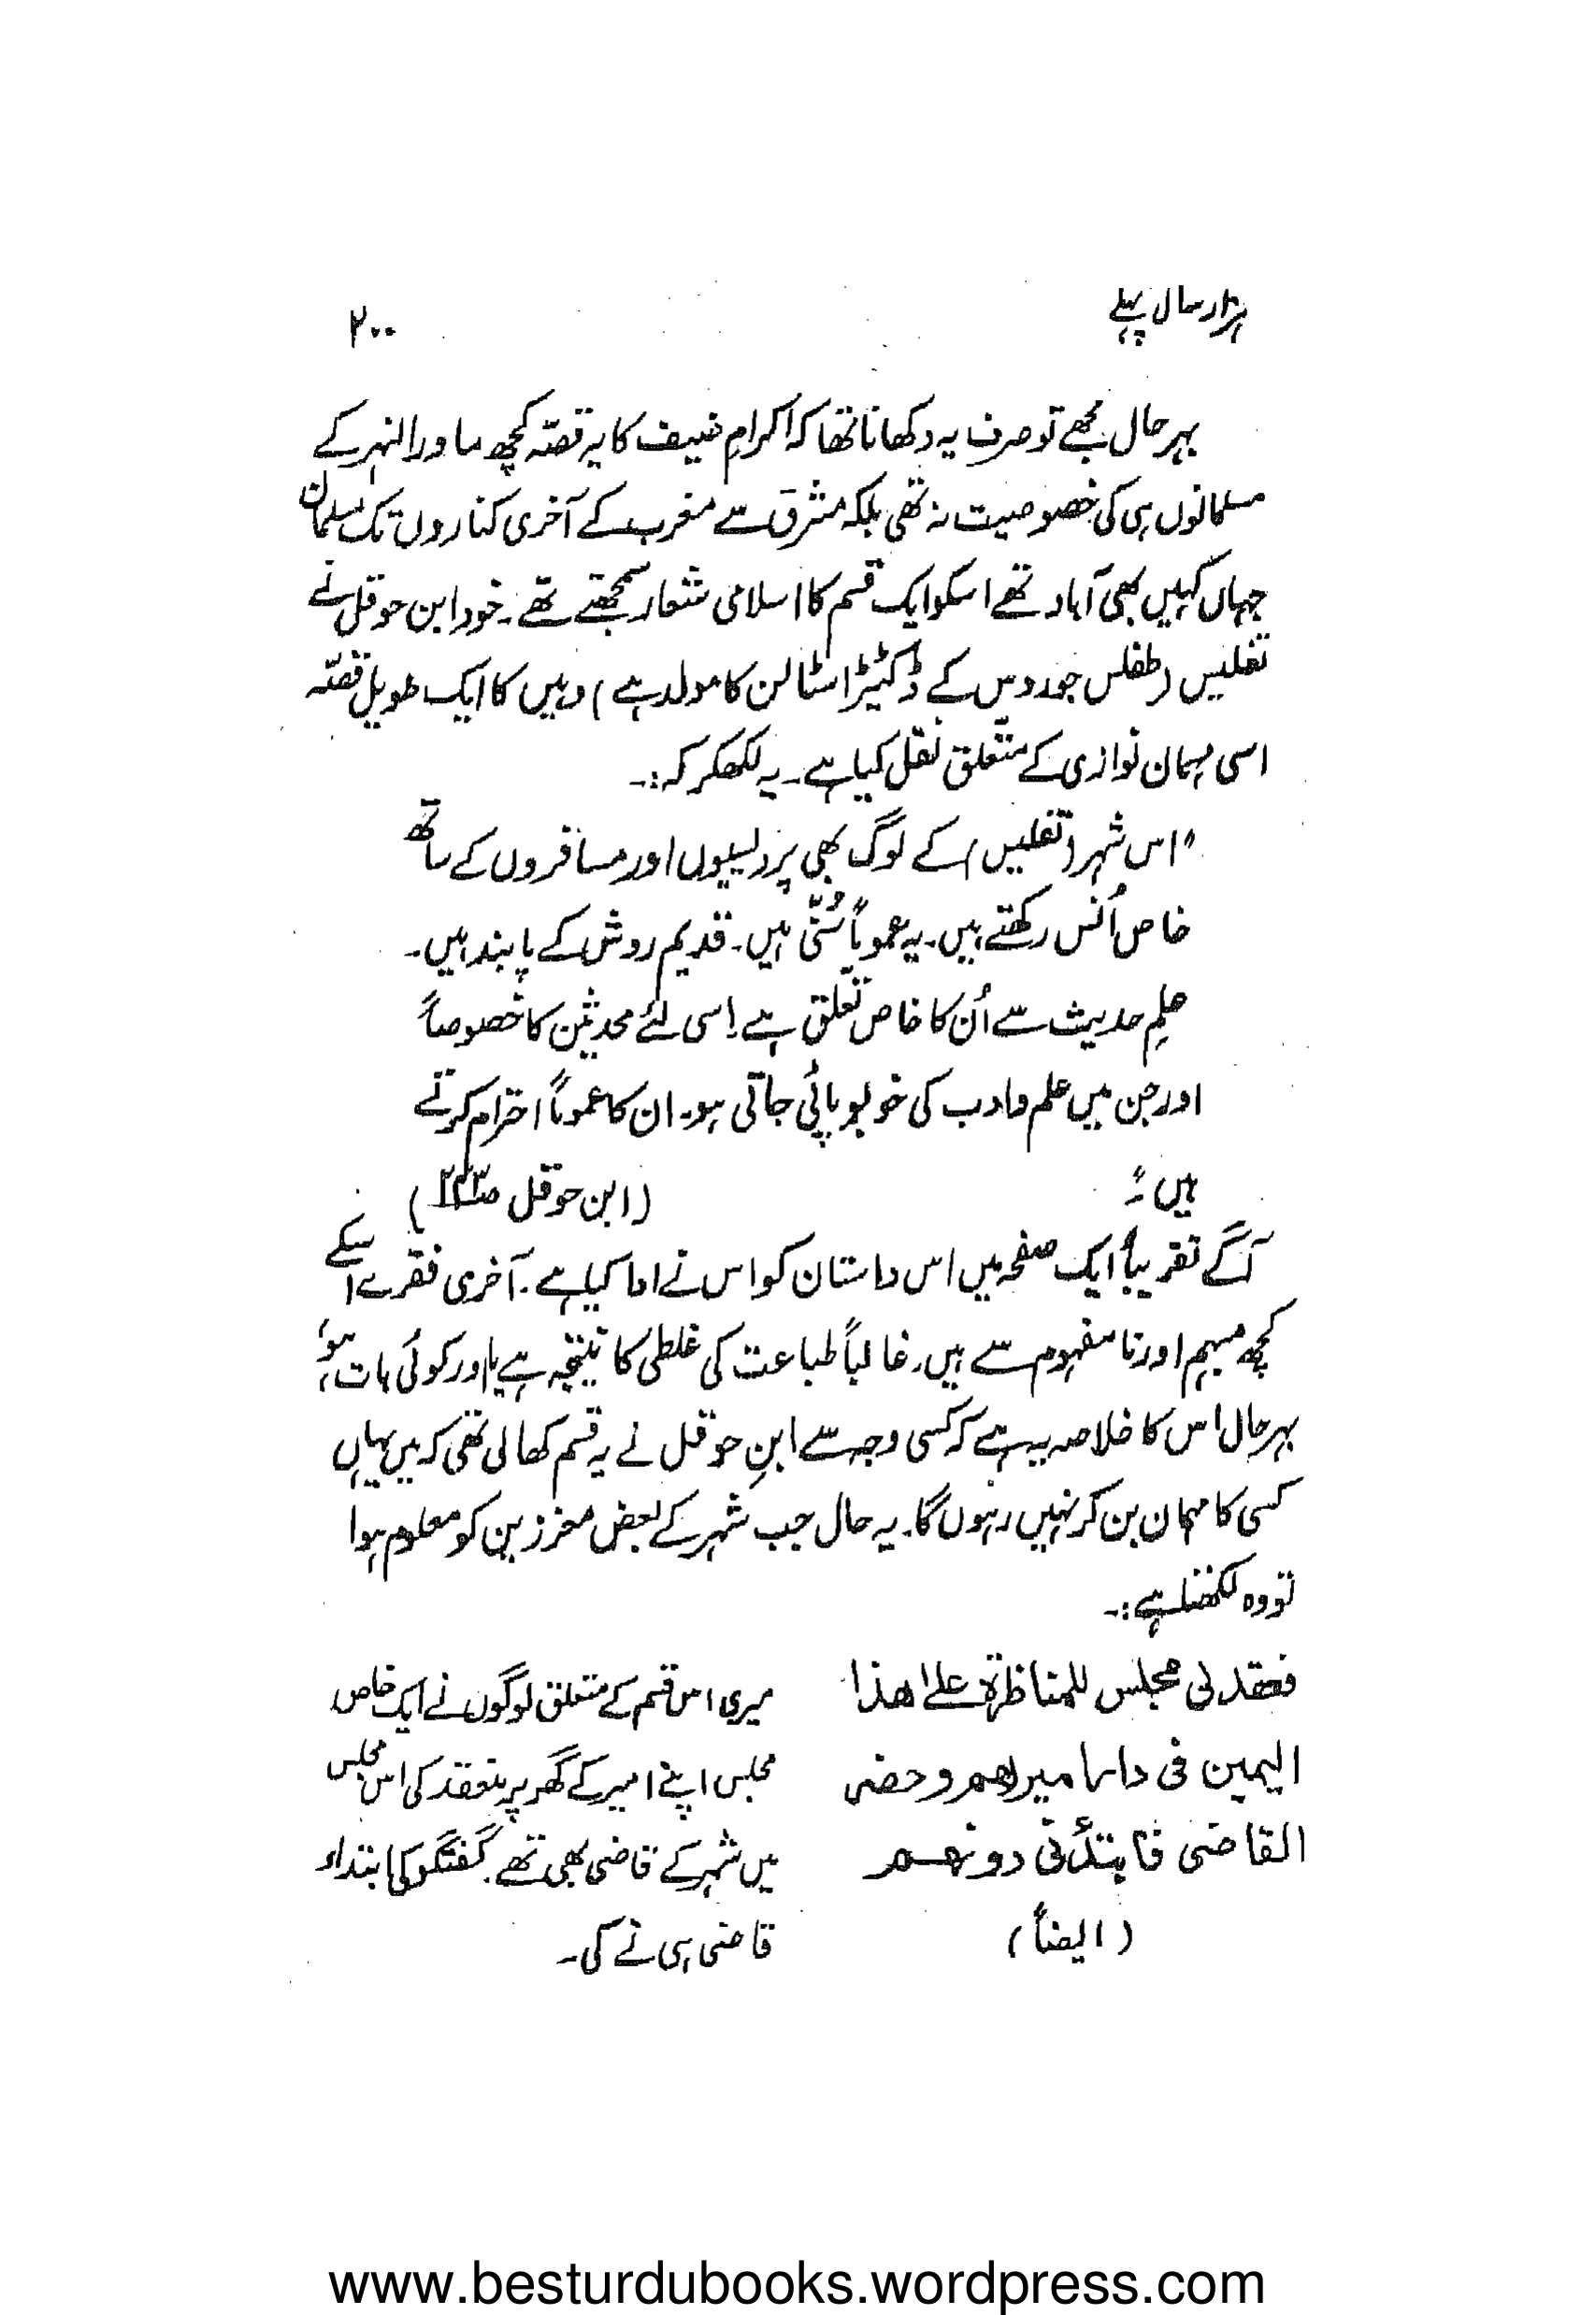 ہزار سال پہلے
۲۰۰
بہرحال مجھے تو صرف یہ دکھانا تھا کہ اکرامِ ضیف کا یہ قصّہ کچھ ماوراالنہر کے
مسلمانوں ہی کی خصوصیت نہ تھی بلکہ مشرق سے مغرب کے آخری کناروں تک مسلمان
جہاں کہیں بھی آباد تھے اسکو ایک قسم کا اسلامی شعار سمجھتے تھے۔ خود ابن حوقل نے
تفلیس (طفلس جو روس کے ڈکٹیٹر اسٹالن کا مولد ہے) وہیں کا ایک طویل قصّہ
اسی مہمان نوازی کے متعلق نقل کیا ہے۔ یہ لکھکر کہ:۔
"اس شہر (تفلیس) کے لوگ بھی پردلیسیوں اور مسافروں کے ساتھ
خاص اُنس رکھتے ہیں۔ یہ عموماً سُنّی ہیں۔ قدیم روش کے پابند ہیں۔
علمِ حدیث سے اُن کا خاص تعلق ہے اسی لئے محدثین کا خصوصاً
اور جن میں علم وادب کی خوبو پائی جاتی ہو۔ ان کا عموماً احترام کرتے
ہیں"۔
(ابن حوقل ص۲۴۳)
آگے تقریباً ایک صفحہ میں اس داستان کو اس نے ادا کیا ہے۔ آخری فقرے اسکے
کچھ مبہم اور نا مفہوم سے ہیں۔ غالباً طباعت کی غلطی کا نتیجہ ہے یا اور کوئی بات ہو،
بہرحال اس کا خلاصہ یہ ہے کہ کسی وجہ سے ابنِ حوقل نے یہ قسم کھالی تھی کہ میں یہاں
کسی کا مہمان بن کر نہیں رہوں گا۔ یہ حال جب شہر کے بعض معززین کو معلوم ہوا
تو وہ لکھتا ہے:۔
فعقد لی مجلس للمناظرۃ علےٰ ھذا
الیمین فی دار امیرھم وحضر
القاضی فابتدأنی دونھم
(ایضاً)
میری اس قسم کے متعلق لوگوں نے ایک خاص
مجلس اپنے امیر کے گھر پر منعقد کی اس مجلس
میں شہر کے قاضی بھی تھے۔ گفتگو کی ابتداء
قاضی ہی نے کی۔
www.besturdubooks.wordpress.com